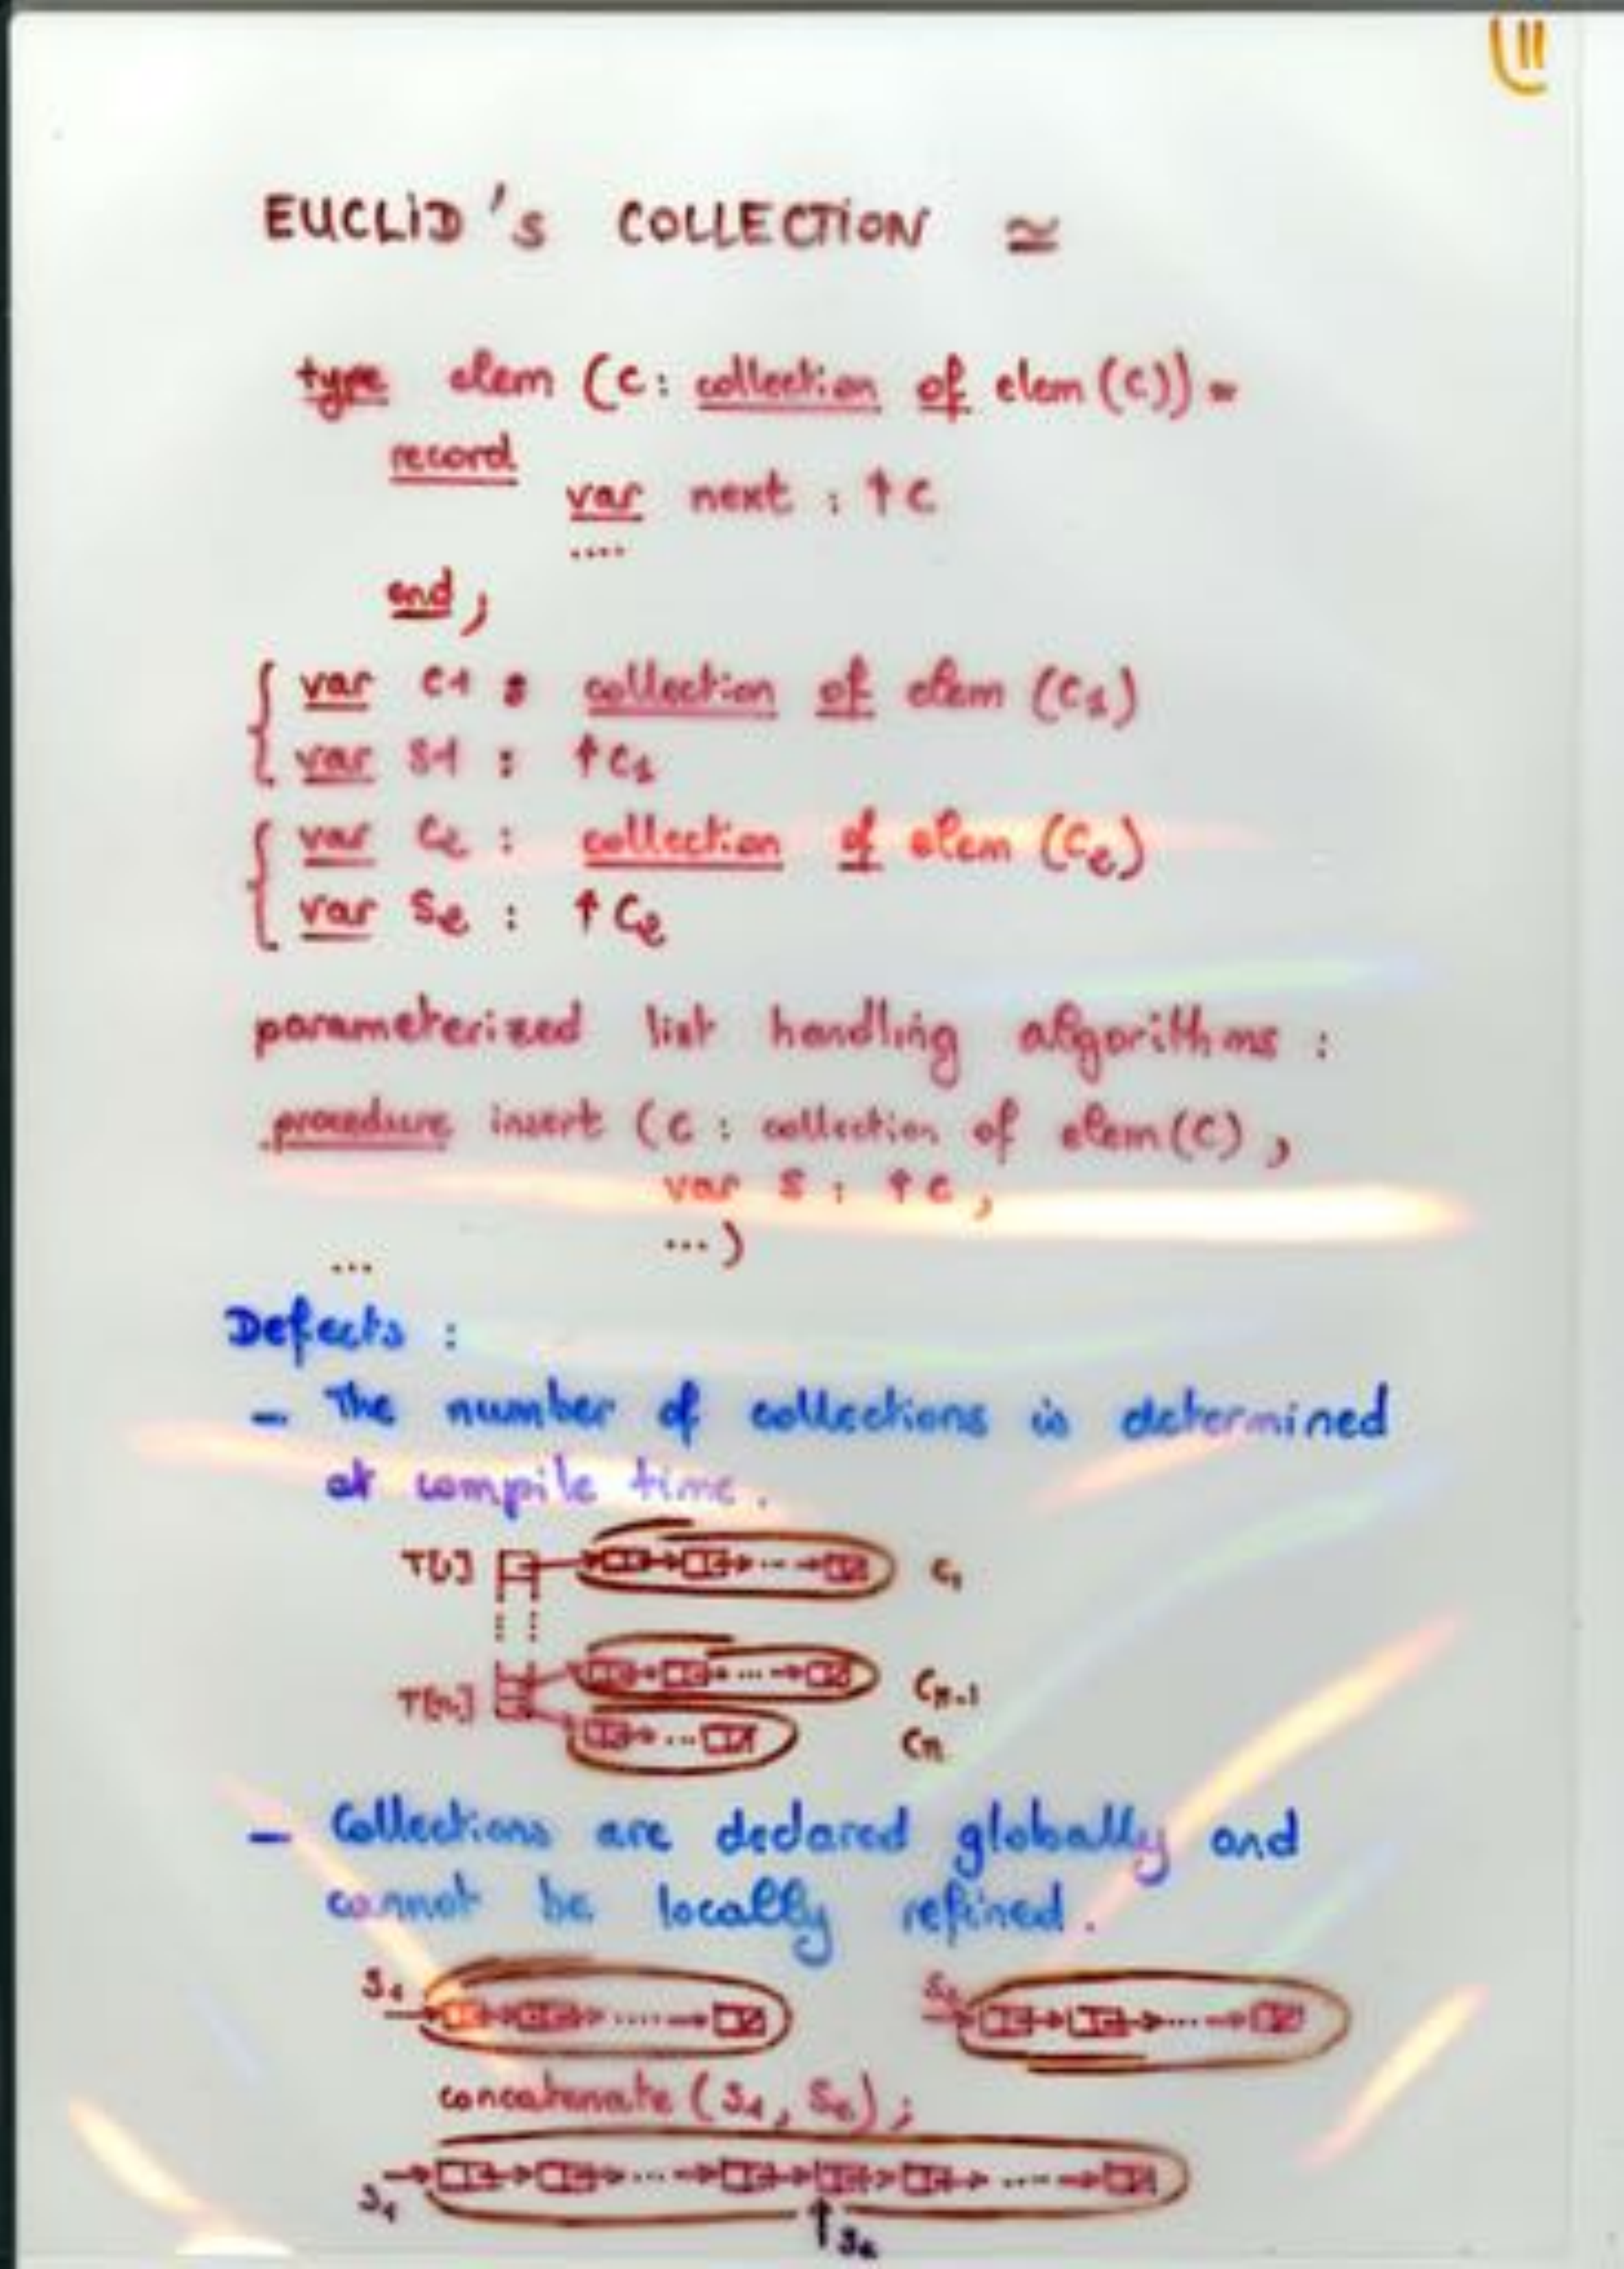 11
EUCLID's COLLECTION ≃
type elem (C: collection of elem (C)) =
record
var next : ↑C
....
end ;
var C1 : collection of elem (C1)
var S1 : ↑C1
var C2 : collection of elem (C2)
var S2 : ↑C2
parameterized list handling algorithms :
procedure insert (C : collection of elem (C) ,
var S : ↑C ,
... )
...
Defects :
- The number of collections is determined
at compile time .
T[1] C1
Cn-1
T[n] Cn
- Collections are declared globally and
cannot be locally refined .
S1 S2
concatenate (S1 , S2) ;
S1
S2